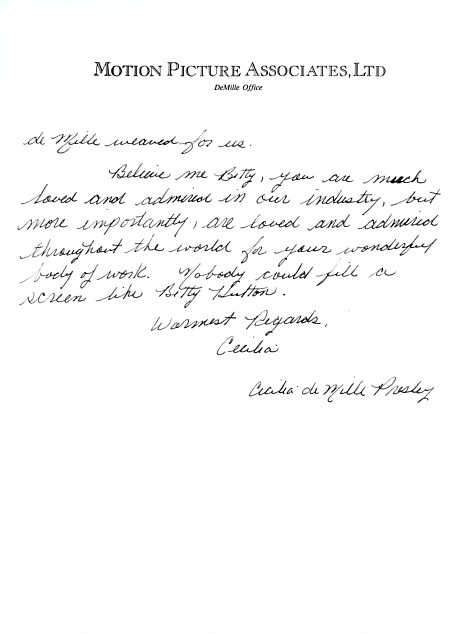 MOTION PICTURE ASSOCIATES, LTD
DeMille Office
de Mille weaved for us.
Believe me Betty, you are much
loved and admired in our industry, but
more importantly, are loved and admired
throughout the world for your wonderful
body of work. Nobody could fill a
screen like Betty Hutton.
Warmest Regards,
Cecilia
Cecilia de Mille Presley